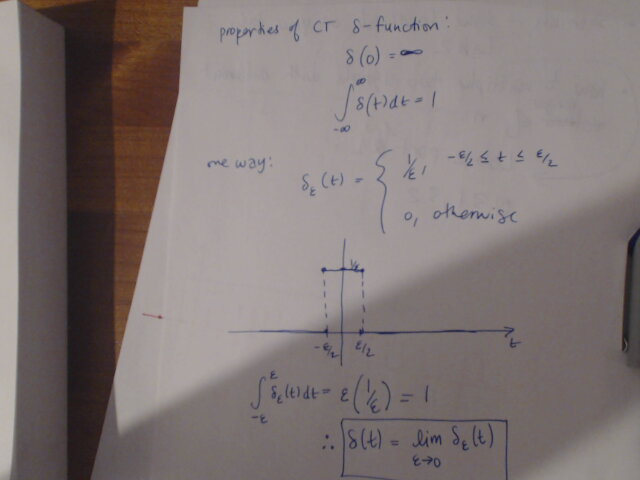 properties of CT δ-function:
δ(0) = ∞
∫_{-∞}^{∞} δ(t)dt = 1
one way: δ_ε(t) = { 1/ε, -ε/2 ≤ t ≤ ε/2
0, otherwise
1/ε
-ε/2 ε/2 t
∫_{-ε}^{ε} δ_ε(t)dt = ε(1/ε) = 1
∴ δ(t) = lim_{ε→0} δ_ε(t)